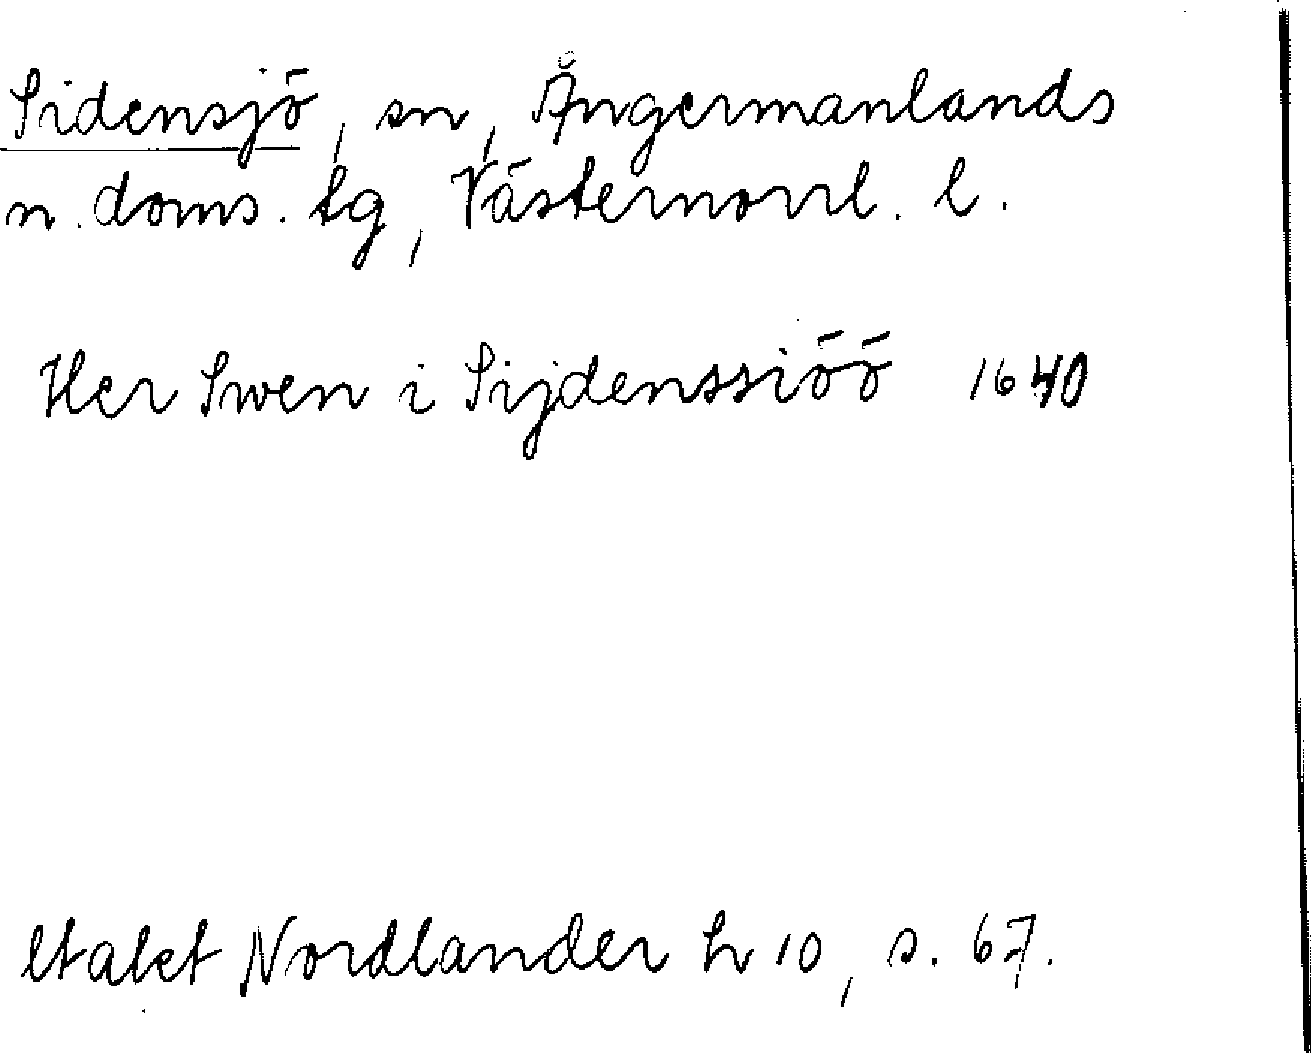 Sidensjö, sn, Ångermanlands
n. doms. tg, Västernorrl. l.
Her Swen i Sijdenssiöö 1640
Nordlander h 10, s. 67.